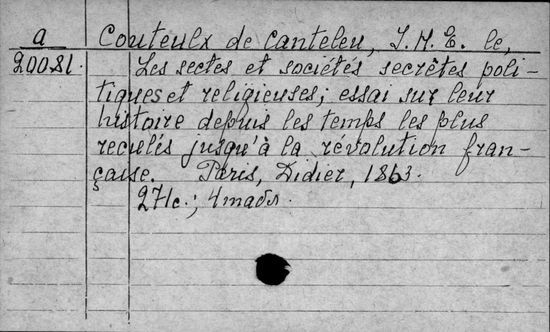 a Couteulx de Canteleu, J. H. E. le,
20081. Les sectes et sociétés secrètes poli-
tiques et religieuses; essai sur leur
histoire depuis les temps les plus
reculés jusqu'à la révolution fran-
çaise. Paris, Didier, 1863.
271c.; 4